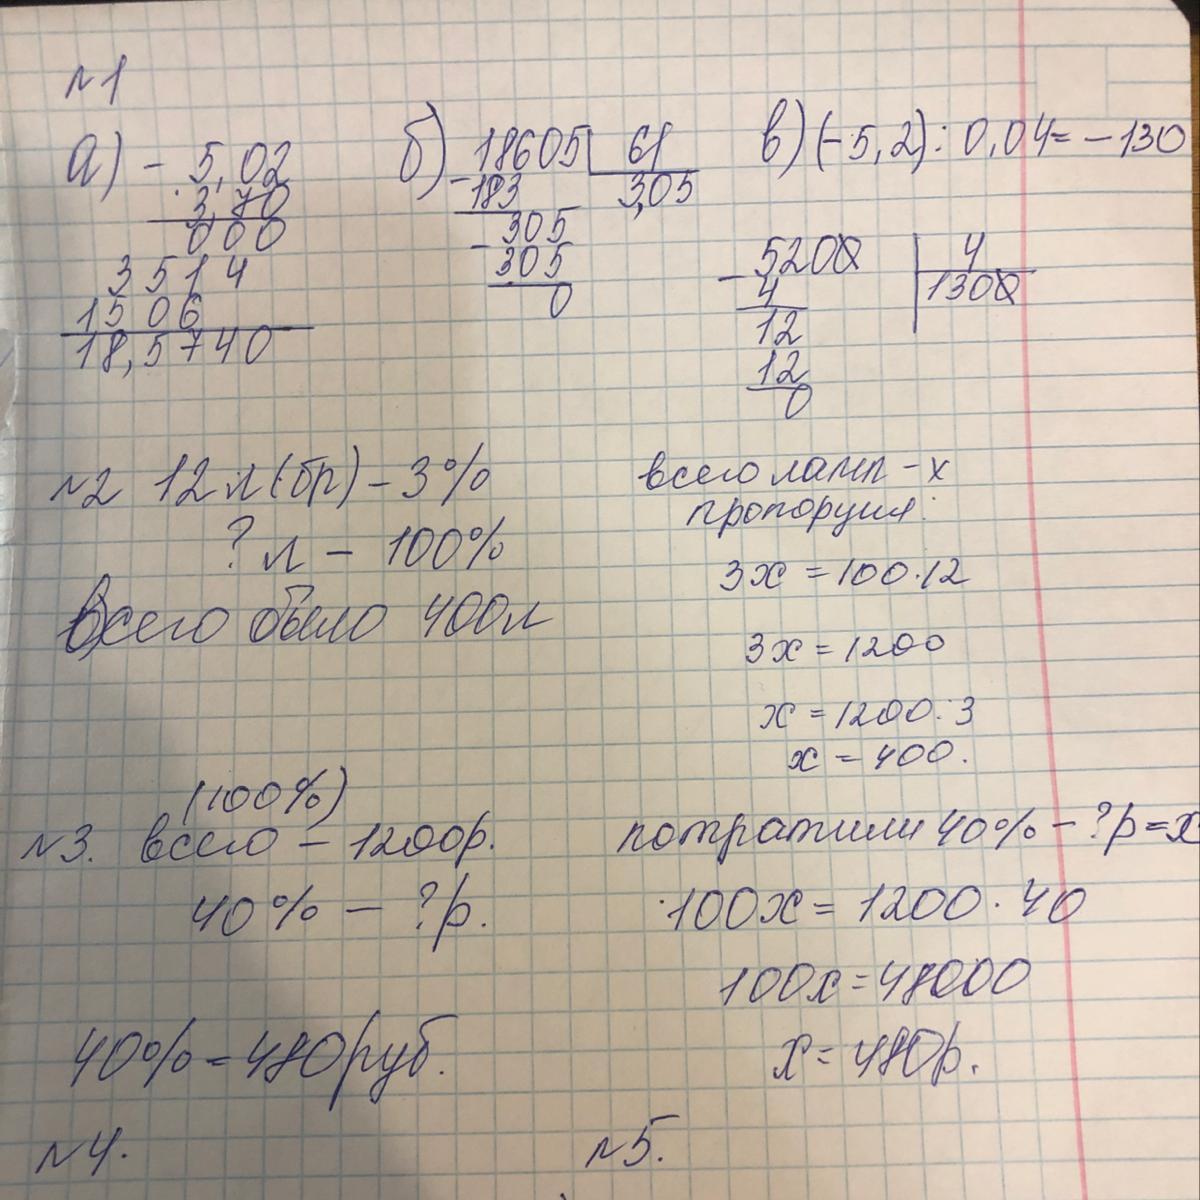 №1
а) - 5,02
3,70
000
3514
1506
18,5740
б) 18605 | 61
- 183 3,05
305
- 305
0
в) (-5,2) : 0,04 = -130
- 5200 | 4
4 1300
12
12
0
№2 12 л (бр) - 3%
? л - 100%
Всего было 400л
всего ламп - x
пропорция:
3x = 100·12
3x = 1200
x = 1200:3
x = 400.
(100%)
№3. всего - 1200р.
40% - ?р.
40% = 480руб.
потратили 40% - ?р = x
100x = 1200·40
100x = 48000
x = 480р.
№4.
№5.